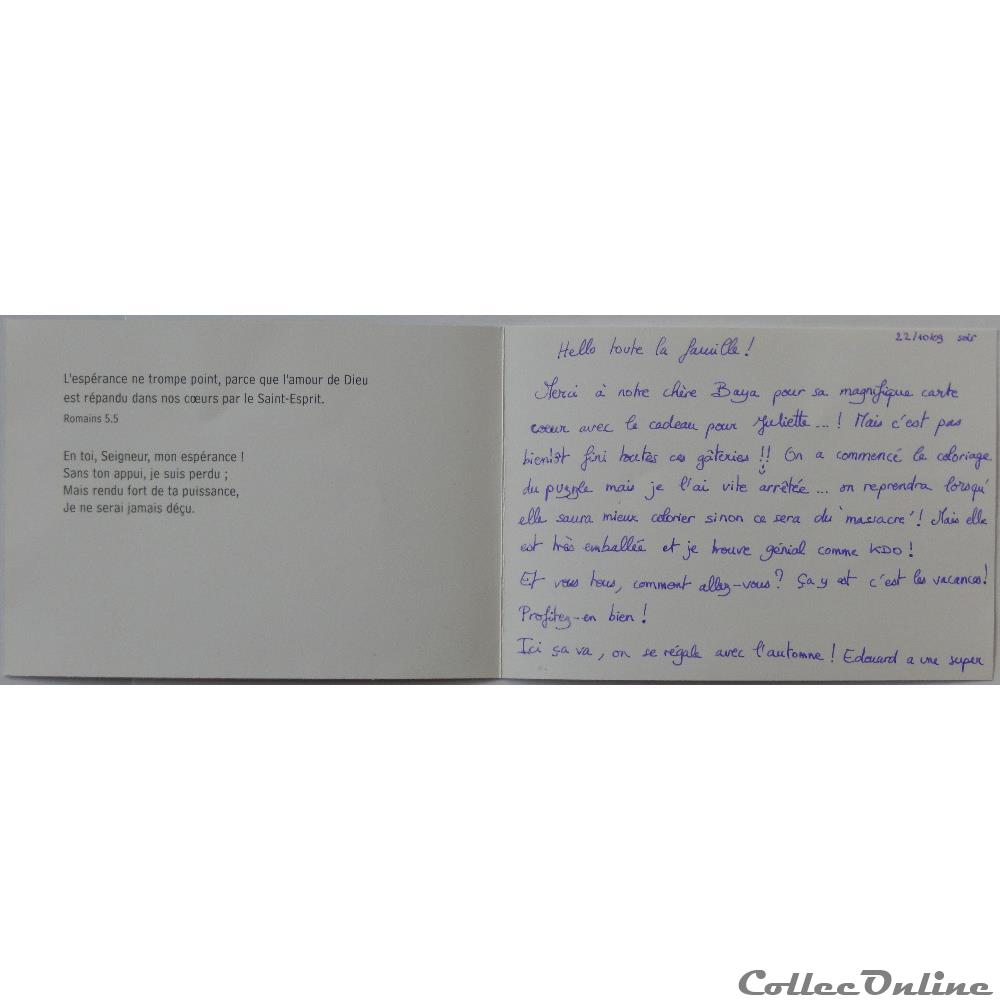 L'espérance ne trompe point, parce que l'amour de Dieu
est répandu dans nos cœurs par le Saint-Esprit.
Romains 5.5
En toi, Seigneur, mon espérance !
Sans ton appui, je suis perdu ;
Mais rendu fort de ta puissance,
Je ne serai jamais déçu.
22/10/09 soir
Hello toute la famille !
Merci à notre chère Baya pour sa magnifique carte
cœur avec le cadeau pour Juliette... ! Mais c'est pas
bientôt fini toutes ces gâteries !! On a commencé le coloriage
du puzzle mais je l'ai vite arrêtée... on reprendra lorsqu'
elle saura mieux colorier sinon ce sera du 'massacre' ! Mais elle
est très emballée et je trouve génial comme KDO !
Et vous tous, comment allez-vous ? Ça y est c'est les vacances !
Profitez-en bien !
Ici ça va, on se régale avec l'automne ! Edouard a une super
CollecOnline